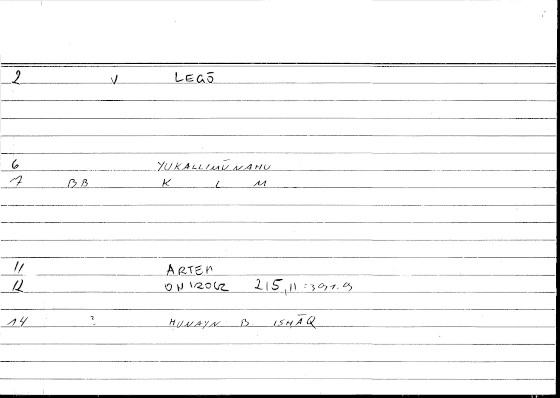 2 V LEGŌ
6 YUKALLIMŪNAHU
7 BB K L M
11 ARTEM
12 ONIROCR 215,11:391.9
14 ? HUNAYN B ISHĀQ